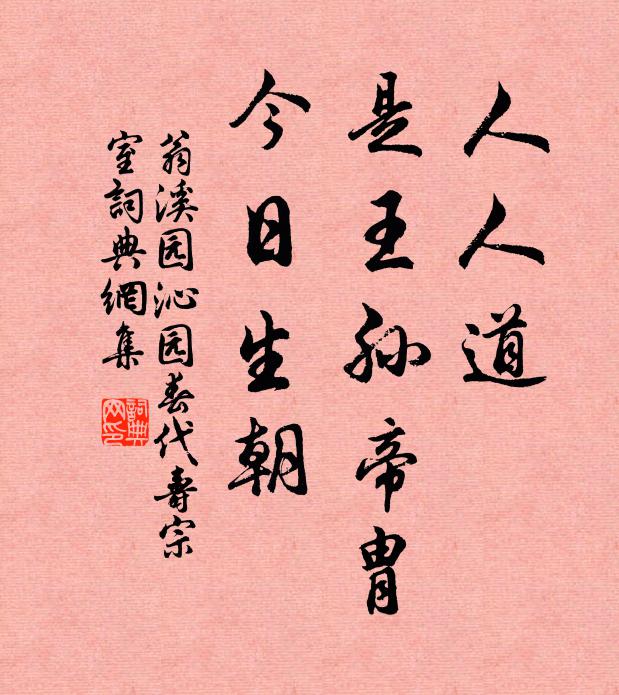 人人道
是王孙帝胄
今日生朝
翁溪园沁园春代寿宗
室詞典網集
詞典
网印